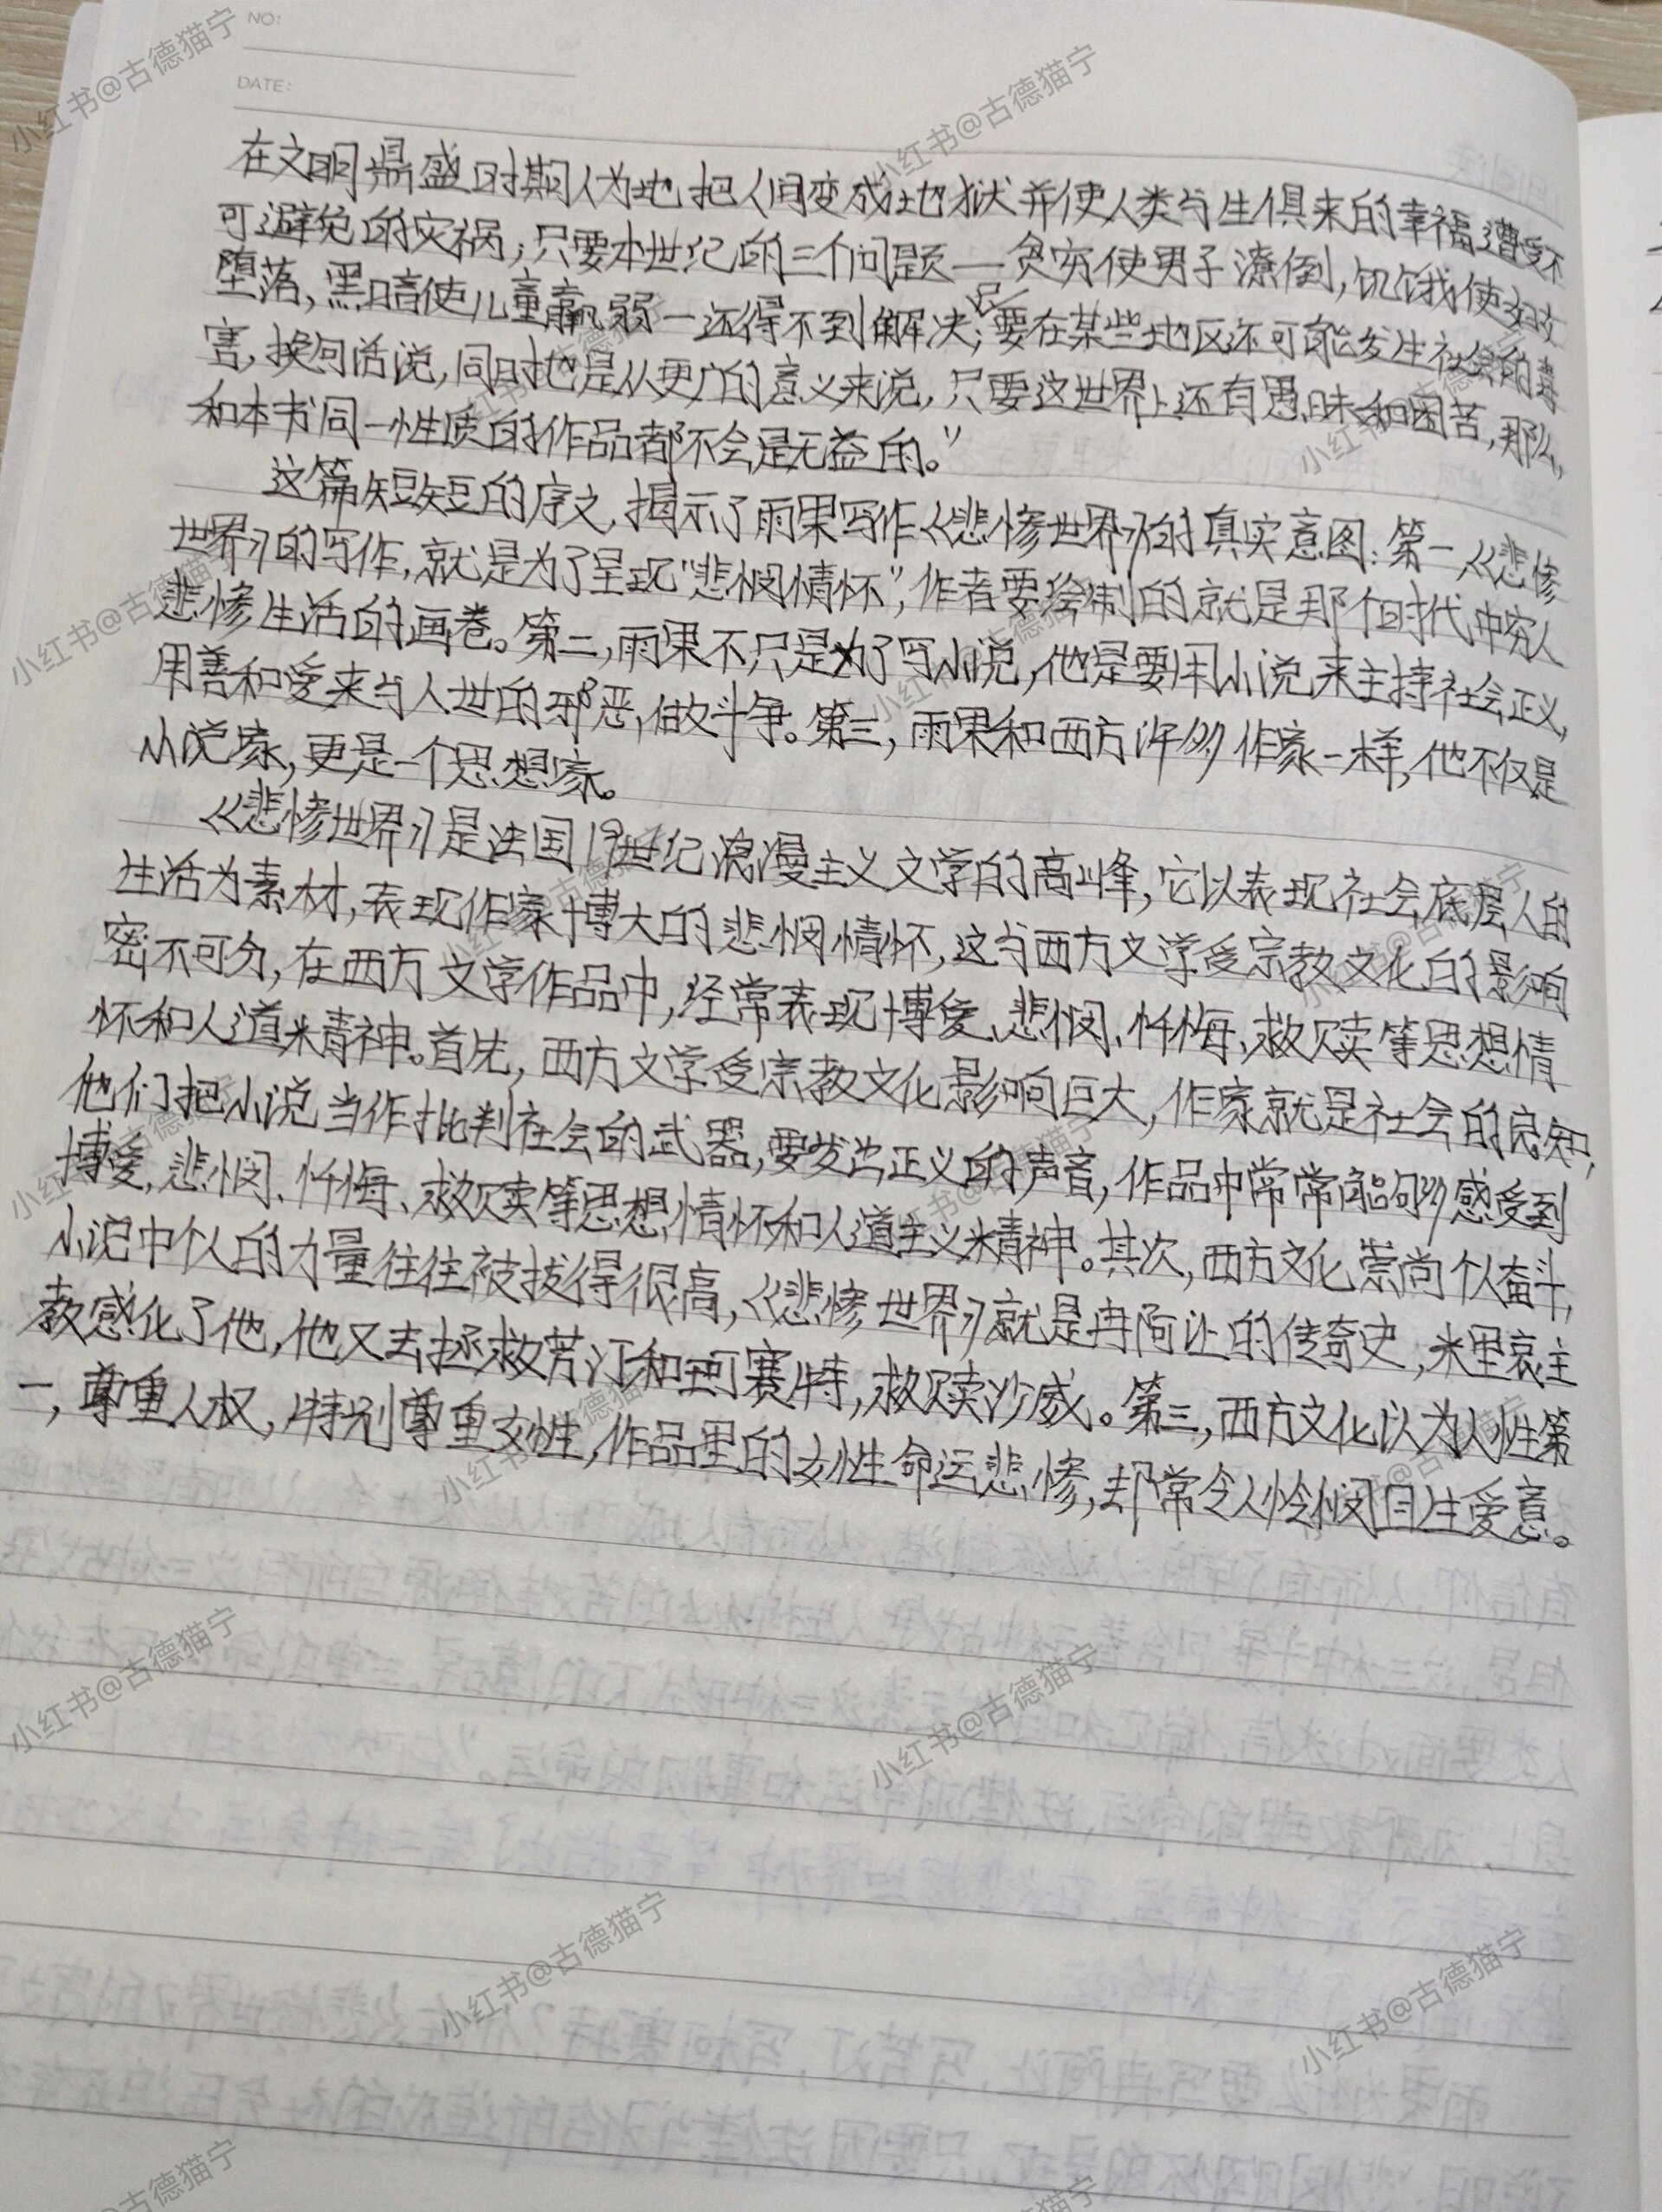 NO:
DATE:
在文明鼎盛时期人为地把人间变成地狱并使人类与生俱来的幸福遭受不
可避免的灾祸；只要本世纪的三个问题—贫穷使男子潦倒，饥饿使妇女
堕落，黑暗使儿童羸弱—还得不到解决；只要在某些地区还可能发生社会的毒
害，换句话说，同时也是从更广的意义来说，只要这世界上还有愚昧和困苦，那么，
和本书同一性质的作品都不会是无益的。”
这篇短短的序文，揭示了雨果写作《悲惨世界》的真实意图：第一，《悲惨
世界》的写作，就是为了呈现“悲悯情怀”，作者要绘制的就是那个时代中穷人
悲惨生活的画卷。第二，雨果不只是为了写小说，他是要用小说来主持社会正义，
用善和爱来与人世的邪恶，做斗争。第三，雨果和西方许多作家一样，他不仅是
小说家，更是一个思想家。
《悲惨世界》是法国19世纪浪漫主义文学的高峰，它以表现社会底层人的
生活为素材，表现作家博大的悲悯情怀，这与西方文学受宗教文化的影响
密不可分，在西方文学作品中，经常表现博爱、悲悯、忏悔、救赎等思想情
怀和人道精神。首先，西方文学受宗教文化影响巨大，作家就是社会的良知，
他们把小说当作批判社会的武器，要发出正义的声音，作品中常常能够感受到
博爱，悲悯、忏悔、救赎等思想情怀和人道主义精神。其次，西方文化崇尚个人奋斗，
小说中个人的力量往往被拔得很高，《悲惨世界》就是冉阿让的传奇史，米里哀主
教感化了他，他又去拯救芳汀和珂赛特，救赎沙威。第三，西方文化以为人性第
一，尊重人权，特别尊重女性，作品里的女性命运悲惨，却常令人怜悯且生爱意。
小红书@古德猫宁